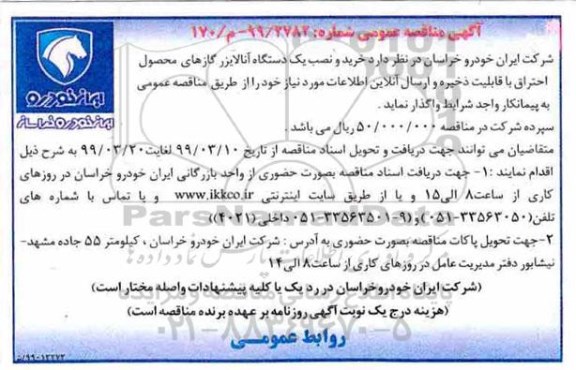 آگهی مناقصه عمومی شماره: ۹۹/۲۷۸۲-م/۱۷۰
شرکت ایران خودرو خراسان در نظر دارد خرید و نصب یک دستگاه آنالایزر گازهای محصول
احتراق با قابلیت ذخیره و ارسال آنلاین اطلاعات مورد نیاز خود را از طریق مناقصه عمومی
به پیمانکار واجد شرایط واگذار نماید .
سپرده شرکت در مناقصه ۵۰/۰۰۰/۰۰۰ ریال می باشد .
متقاضیان می توانند جهت دریافت و تحویل اسناد مناقصه از تاریخ ۹۹/۰۳/۱۰ لغایت ۹۹/۰۳/۲۰ به شرح ذیل
اقدام نمایند : ۱- جهت دریافت اسناد مناقصه بصورت حضوری از واحد بازرگانی ایران خودرو خراسان در روزهای
کاری از ساعت ۸ الی ۱۵ و یا از طریق سایت اینترنتی www.ikkco.ir و یا تماس با شماره های
تلفن (۳۳۵۶۳۰۵۰-۰۵۱) و (۹-۳۳۵۶۳۵۰۱-۰۵۱ داخلی ۴۰۲۱)
۲-جهت تحویل پاکات مناقصه بصورت حضوری به آدرس : شرکت ایران خودرو خراسان ، کیلومتر ۵۵ جاده مشهد-
نیشابور دفتر مدیریت عامل در روزهای کاری از ساعت ۸ الی ۱۴
(شرکت ایران خودرو خراسان در رد یک یا کلیه پیشنهادات واصله مختار است)
(هزینه درج یک نوبت آگهی روزنامه بر عهده برنده مناقصه است)
روابط عمومی
ایران خودرو
ایران خودرو خراسان
ParsNamadData
۰۲۱-۸۸۳۴۹۶۷۰-۵